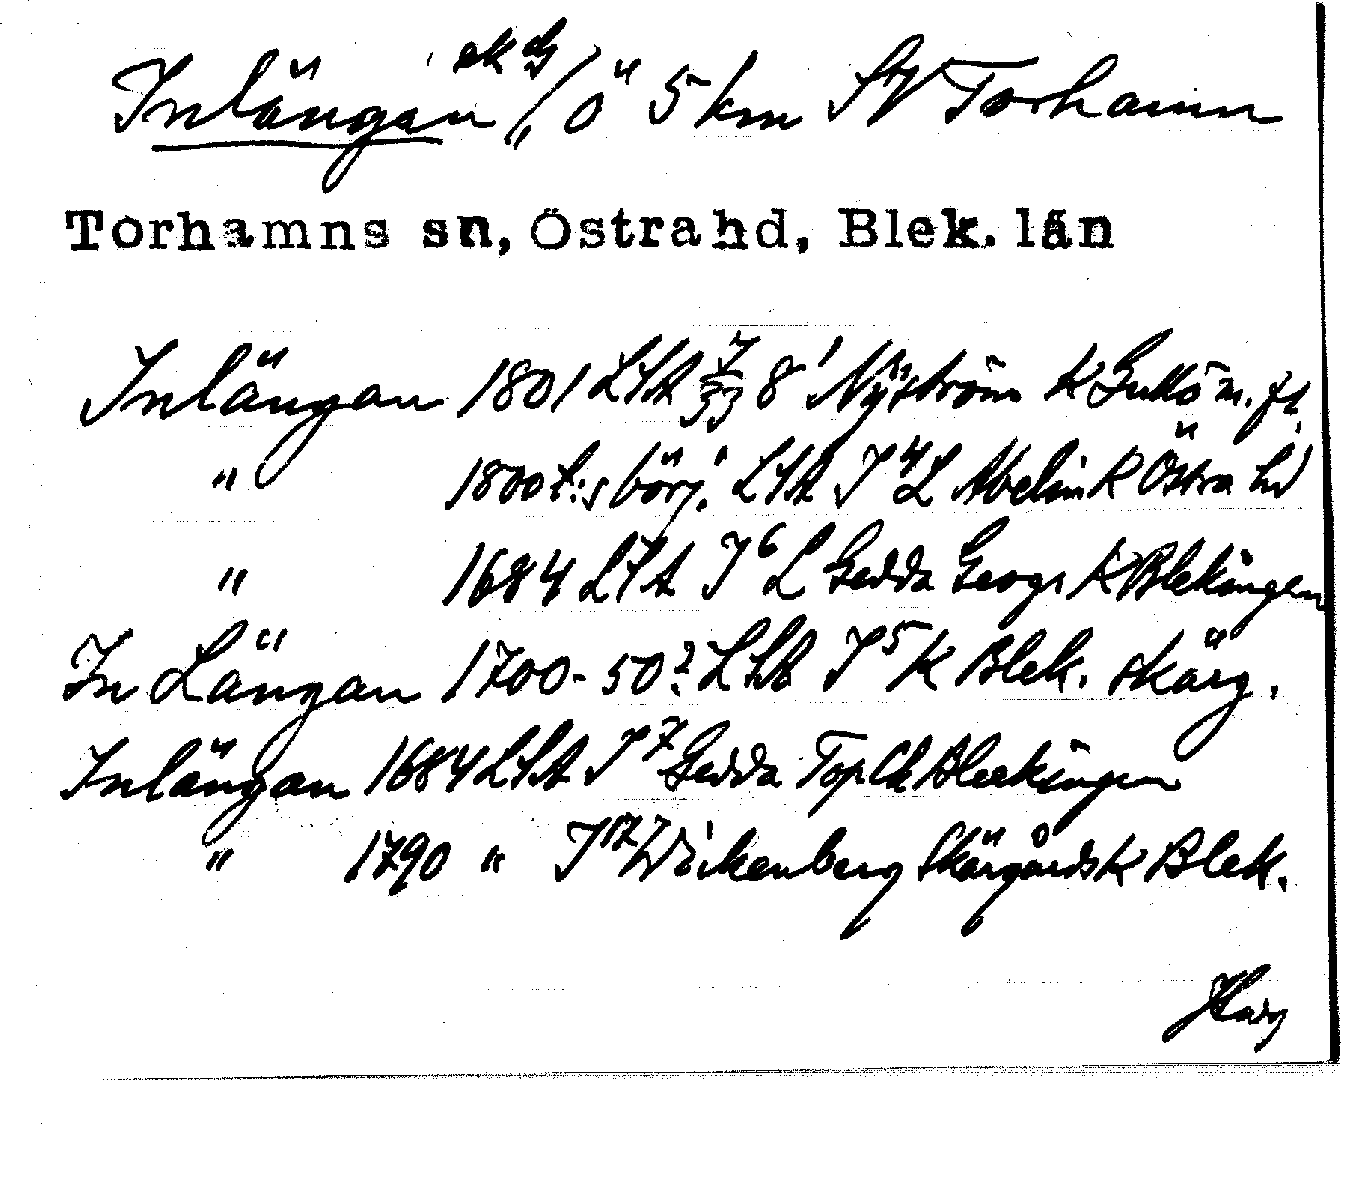 Inlängan ek dg / ö 5 km SV Torhamn
Torhamns sn, Östra hd, Blek. län
Inlängan 1801 LSA 8 1 Nyström K Gullö m. fl.
" 1800 t:s börj. LSA J 4 L Abelin K Östra hd
" 1684 LSA J 6 L Gedda Geogr K Blekingen
In Längan 1700-50? LSA J 5 K Blek. skärg.
Inlängan 1684 LSA J 7 Gedda Top Ch Bleekingen
" 1790 " J 17 Wickenberg Skärgårds K Blek.